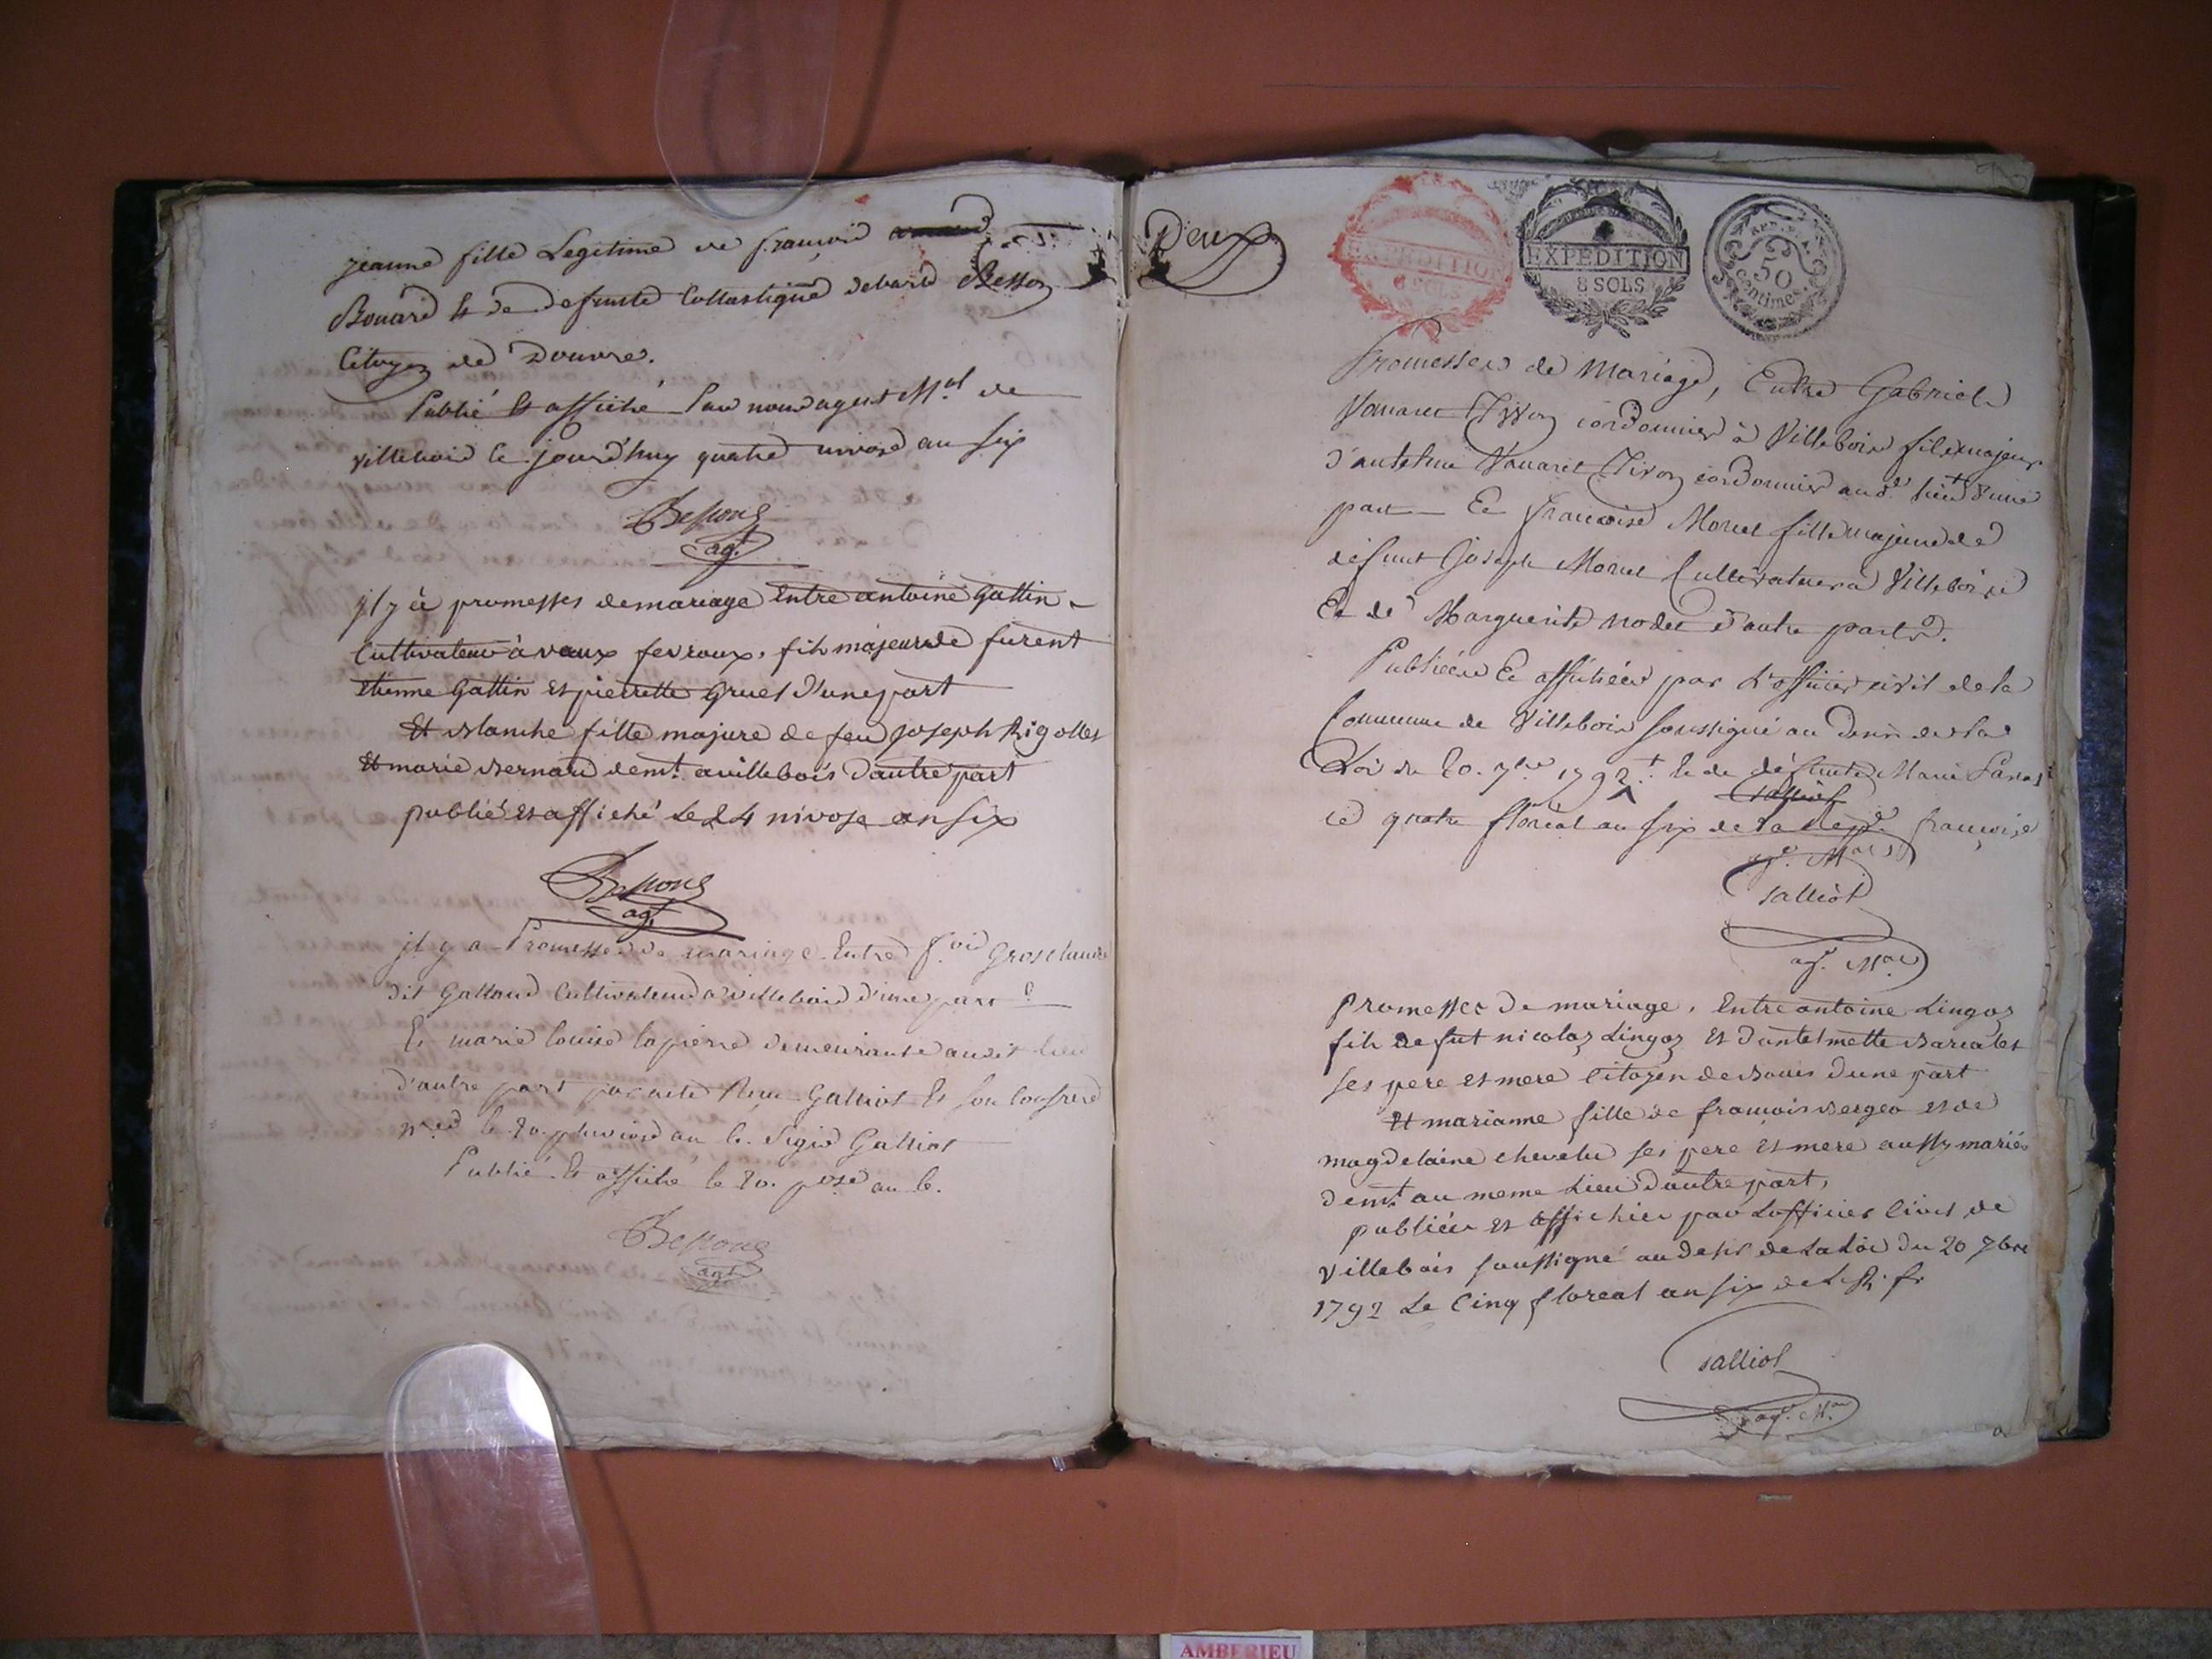 jeanne fille Legitime de francois
Bouard & de defunte Collastique debard Besson
Citoyen de Douvre.
Publié Et affiché Par nous agent M.al de
villebois le jourd'huy quatre nivose an six
Bessons
agt.
il y à promesses de mariage Entre antoine Gattin
Cultivateur à vaux fevroux, fils majeur de
Etienne Gattin et pierrette Gruel d'une part
Et Blanche fille majure de feu joseph Rigollet
Et marie Bernard demt. a villebois d'autre part
publié et affiché Le 24 nivose an six
Bessons
agt.
il y a Promesses de mariage Entre f.ois Grosclaude
dit Galland Cultivateur a villebois d'une part
Et marie louise lapierre demeurante audit lieu
d'autre part par acte Reçu Galliot Et son Confrere
le 20. pluviose an 6. Signé Galliot
Publié Et affiché le 20. p.ose an 6.
Bessons
agt
Deux
EXPEDITION
8 SOLS
EXPEDITION
8 SOLS
50
Centimes
Promesses de Mariage, Entre Gabriel
Vavaret Tivon cordonnier à Villebois fils majeur
d'antelme Vavaret Tivon cordonnier aud. lieu d'une
part — Et francoise Moruel fille majeure de
défunt Joseph Moruel Cultivateur à Villebois
Et de Marguerite nodet d'autre part.
Publiées Et affichées par L'officier civil de la
Commune de Villebois soussigné au Desir de la
Loi du 20. 7bre 1792. + & de défunte Marie
ce quatre floréal an six de la Rep.e françoise
ag. M.al
Salliot
ag. M.al
promesses de mariage, Entre antoine Lingos
fils de fut nicolas Lingos Et D'antelmette
ses pere et mere Citoyen de Bouis d'une part
Et marianne fille de francois Berger et de
magdelaine chevelu ses pere et mere aussy mariés
demt. au meme Lieu D'autre part,
publiées et affichées par Lofficier Civil de
villebois soussigné au desir de La Loi du 20 7bre
1792 Le Cinq floreal an six de L. R. fr
Salliot
ag. M.al
AMBERIEU